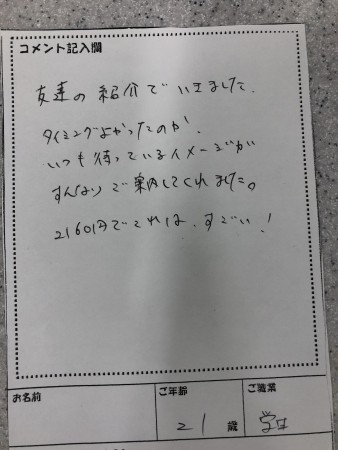 コメント記入欄
友達の紹介でいきました.
タイミングよかったのか.
いつも待っているイメージが
すんなりご案内してくれました。
2160円でこれは、すごい!
お名前
ご年齢
ご職業
21歳
学生